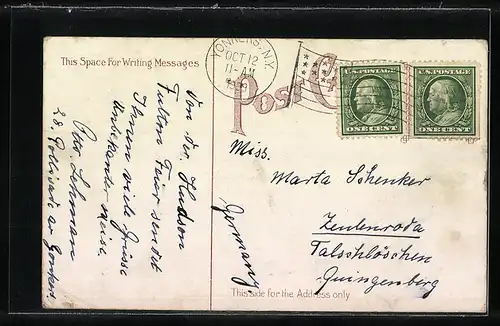 This Space For Writing Messages
YONKERS, N.Y.
OCT 12
11-AM
Post
U.S. POSTAGE
ONE CENT
U.S. POSTAGE
ONE CENT
Von der Hudson
Fulton Feier sendet
Ihnen viele Grüsse
Unbekanter weise
Otto Lehman
Miss.
Marta Schenker
Zeulenroda
Talschlösschen
Quingenberg
Germany
This side for the Address only